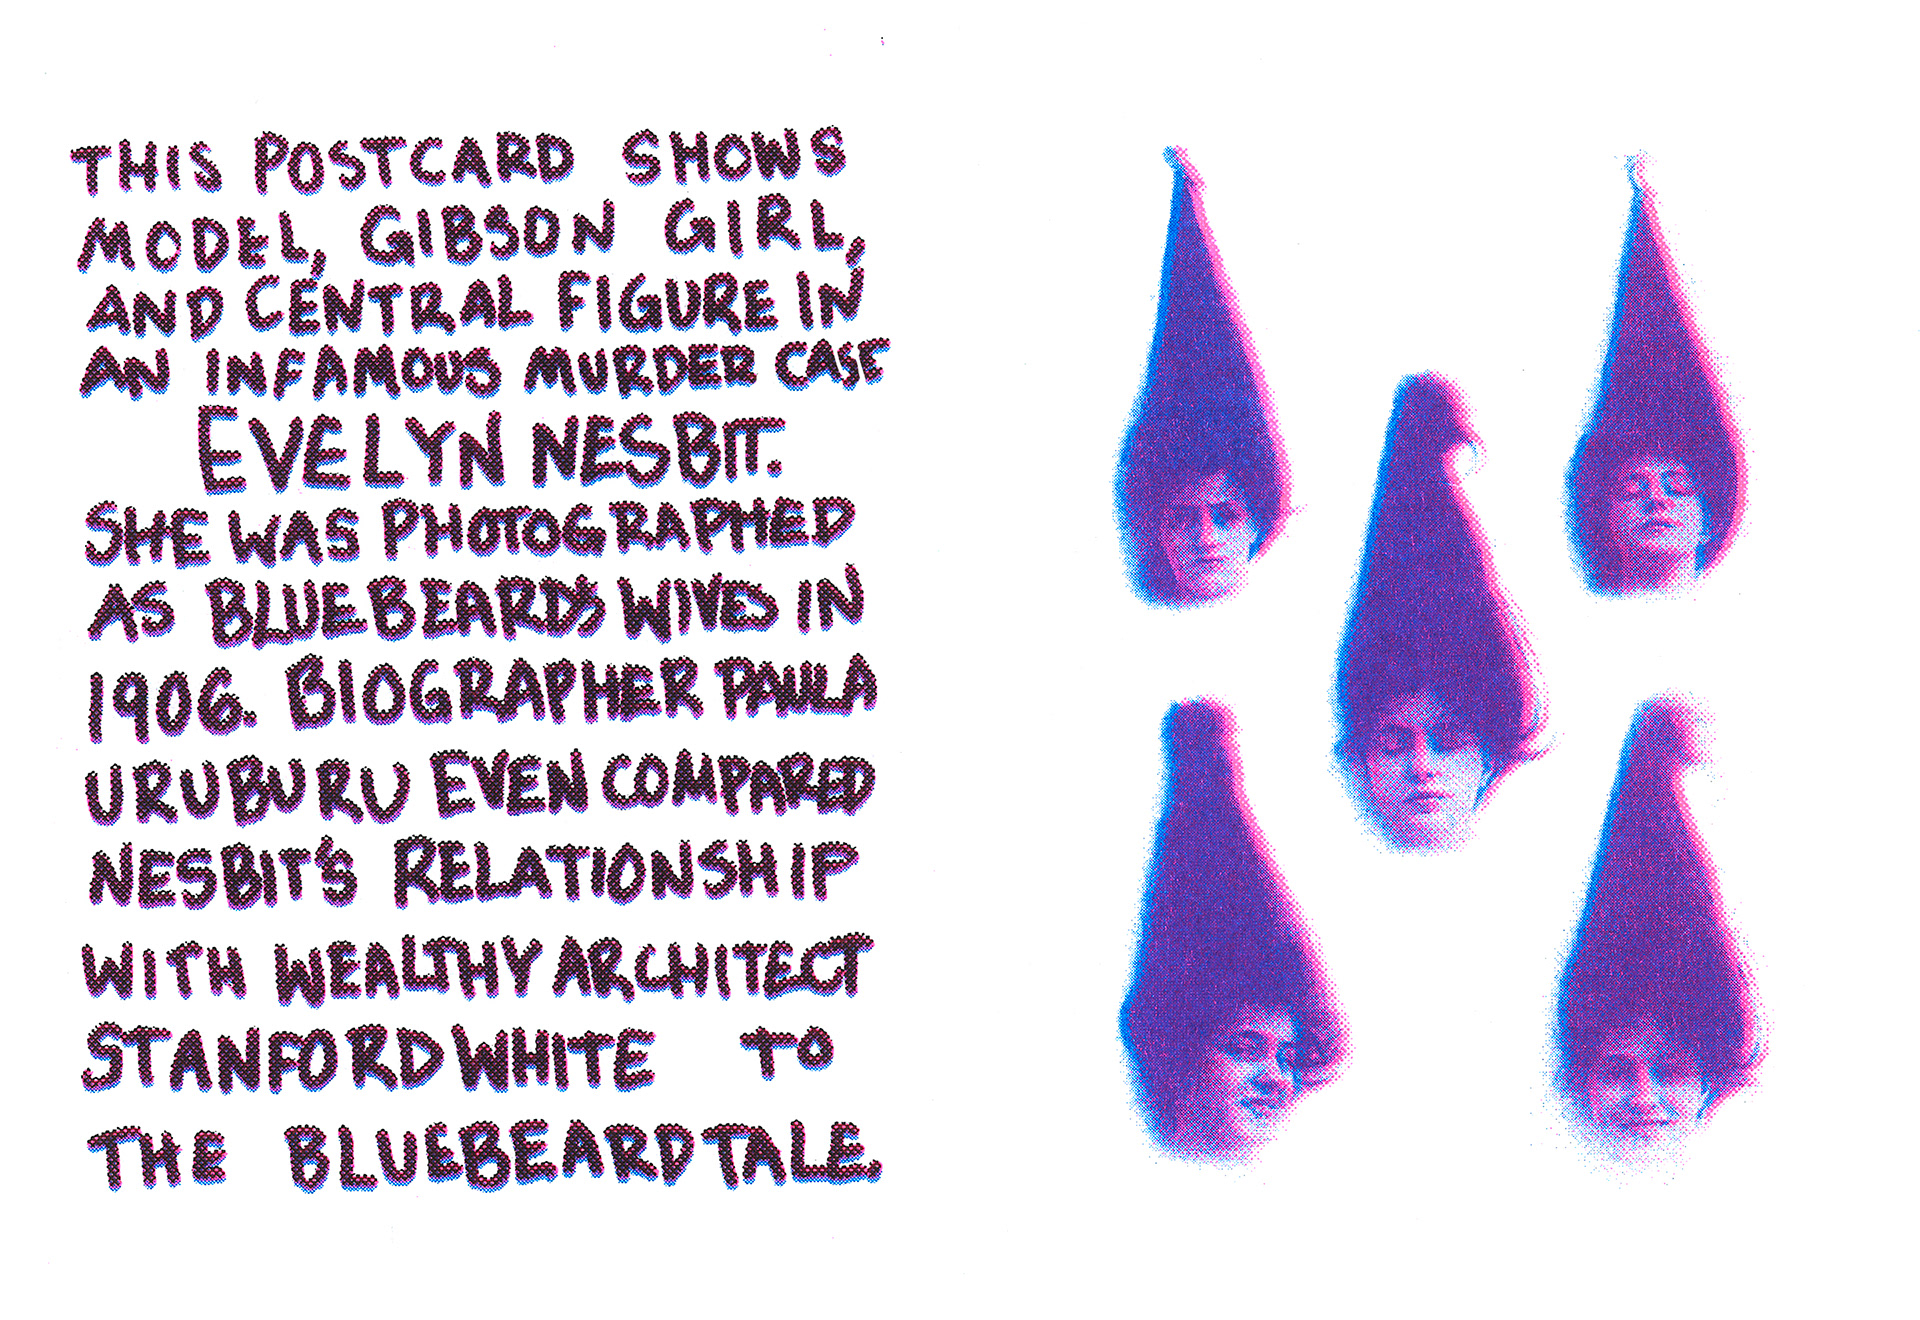 THIS POSTCARD SHOWS
MODEL, GIBSON GIRL,
AND CENTRAL FIGURE IN
AN INFAMOUS MURDER CASE
EVELYN NESBIT.
SHE WAS PHOTOGRAPHED
AS BLUEBEARD'S WIVES IN
1906. BIOGRAPHER PAULA
URUBURU EVEN COMPARED
NESBIT'S RELATIONSHIP
WITH WEALTHY ARCHITECT
STANFORD WHITE TO
THE BLUEBEARD TALE.